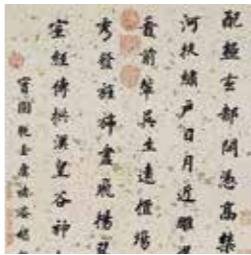 配極玄都閟憑高禁
河扶繡戶日月近雕
看前輩吳生遠擅場
秀發旌旆盡飛揚翠
室經傳拱漢皇谷神